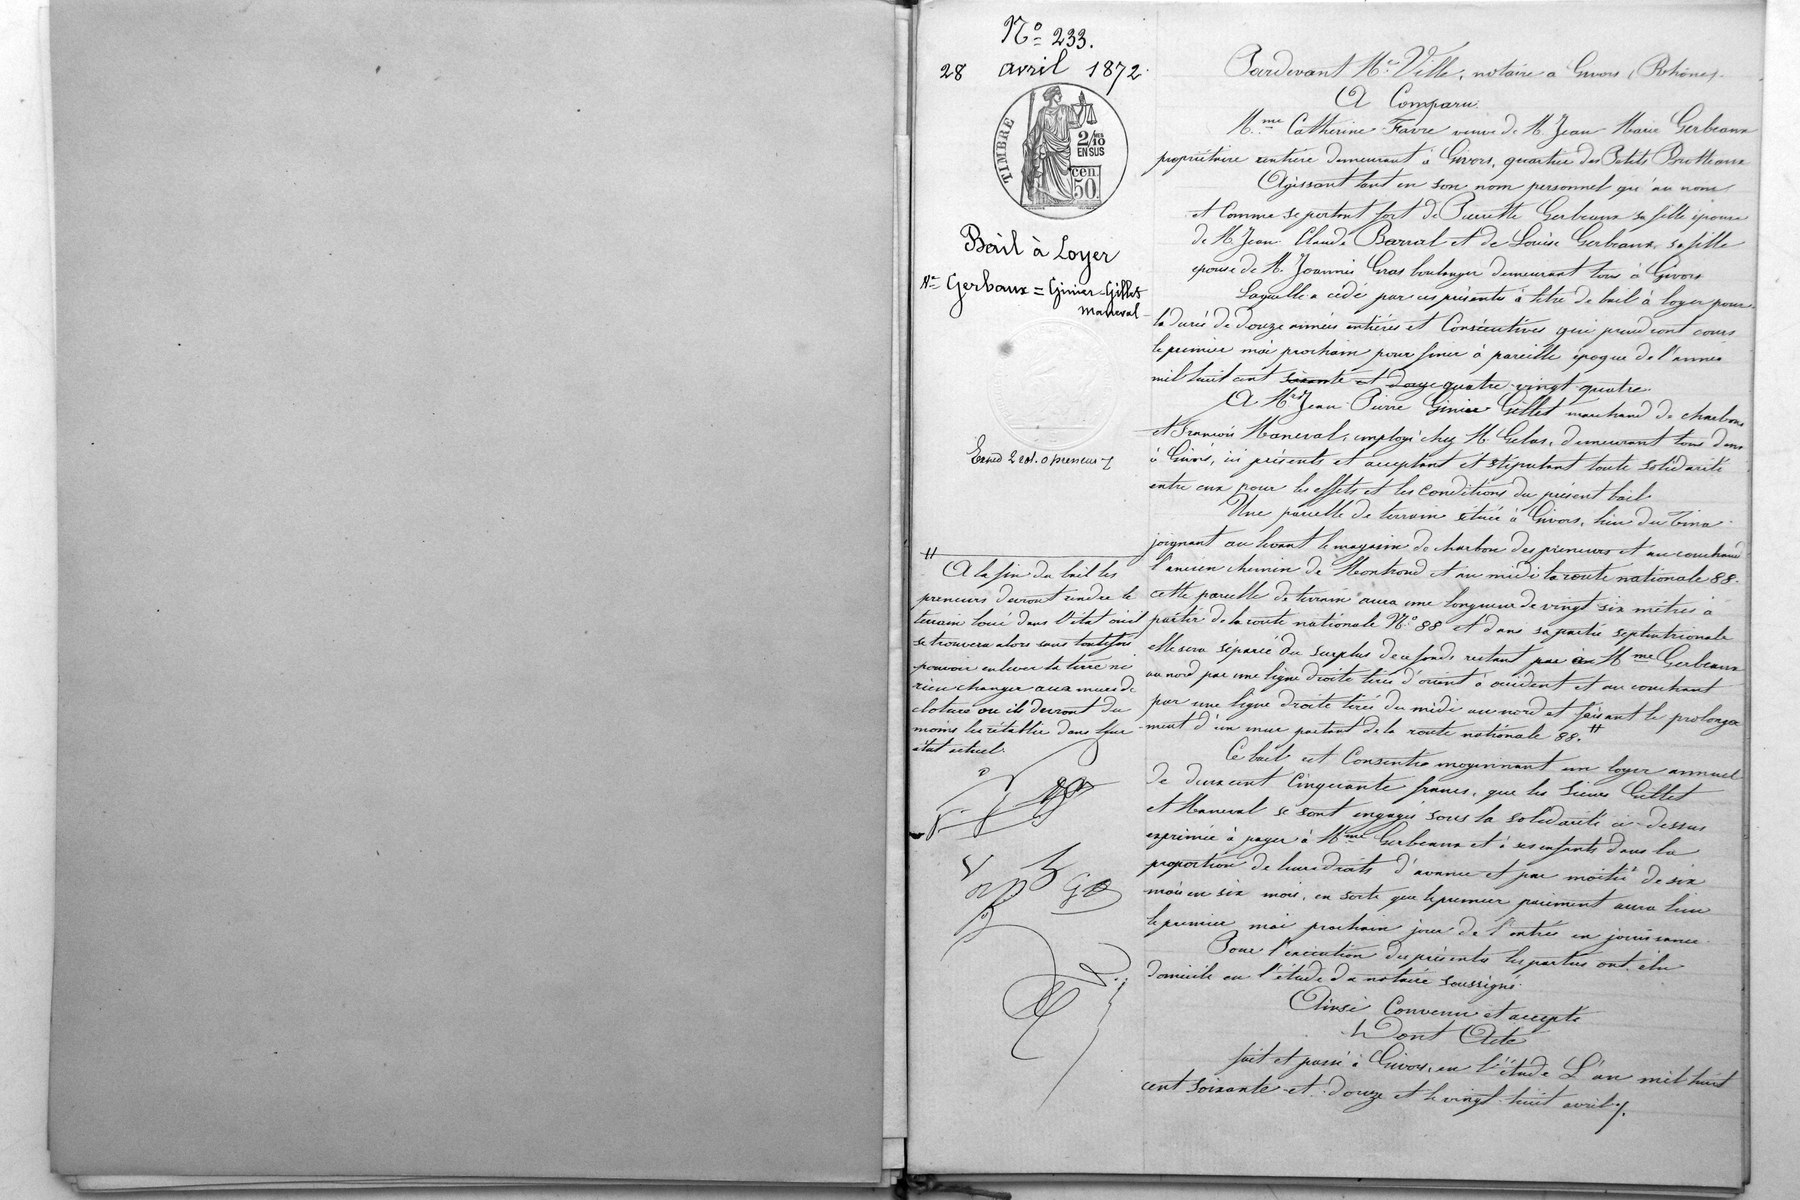 N° 233.
28 avril 1872.
TIMBRE
2/10
EN SUS
50 cen.
Bail à Loyer
Vve Gerbaux = Ginier-Gillet
Maneval
Exped 2 rol. o preneur
Pardevant Me Ville, notaire a Givors, (Rhône).
A Comparu
Mme Catherine Favre veuve de M. Jean Marie Gerbeaux
propriétaire rentière demeurant à Givors, quartier des Petits Brotteaux
Agissant tant en son nom personnel qu'au nom
et Comme se portant fort de Pierrette Gerbeaux sa fille épouse
de M. Jean Claude Barral et de Louise Gerbeaux, sa fille
épouse de M. Joannis Gras boulanger demeurant tous à Givors
Laquelle a cédé par ces présentes à titre de bail à loyer pour
la durée de douze années entières et Consécutives qui prendront cours
le premier mai prochain pour finir à pareille époque de l'année
mil huit cent soixante et douze quatre-vingt-quatre.
A Mrs Jean Pierre Ginier Gillet marchand de charbons
et François Maneval, employé chez M. Gelas, demeurant tous deux
à Givors, ici présents et acceptant et stipulant toute solidarité
entre eux pour les effets et les conditions du présent bail
Une parcelle de terrain située à Givors, lieu du
joignant au levant le magasin de charbon des preneurs et au couchant
l'ancien chemin de Montrond et au midi la route nationale 88.
cette parcelle de terrain aura une longueur de vingt six mètres à
partir de la route nationale N° 88 et dans sa partie septentrionale
elle sera séparée du surplus du fonds restant par à Mme Gerbeaux
au nord par une ligne droite tirée d'orient à occident et au couchant
par une ligne droite tirée du midi au nord et faisant le prolonge
ment d'un mur partant de la route nationale 88. #
Ce bail est Consentie moyennant un loyer annuel
de deux cent Cinquante francs, que les Sieurs Gillet
et Maneval se sont engagés sous la solidarité ci-dessus
exprimée à payer à Mme Gerbeaux et à ses enfants dans la
proportion de leurs droits d'avance et par moitié de six
mois en six mois, en sorte que le premier paiement aura lieu
le premier mai prochain jour de l'entrée en jouissance.
Pour l'exécution des présentes les parties ont élu
domicile en l'étude du notaire soussigné.
Ainsi Convenu et accepté
Dont Acte
fait et passé à Givors, en l'étude L'an mil huit
cent soixante et douze et le vingt-huit avril.
#
A la fin du bail les
preneurs devront rendre le
terrain loué dans l'état où il
se trouvera alors sans toutefois
pouvoir enlever la terre ni
rien changer aux murs de
cloture ou ils devront du
moins les rétablir dans leur
état actuel.